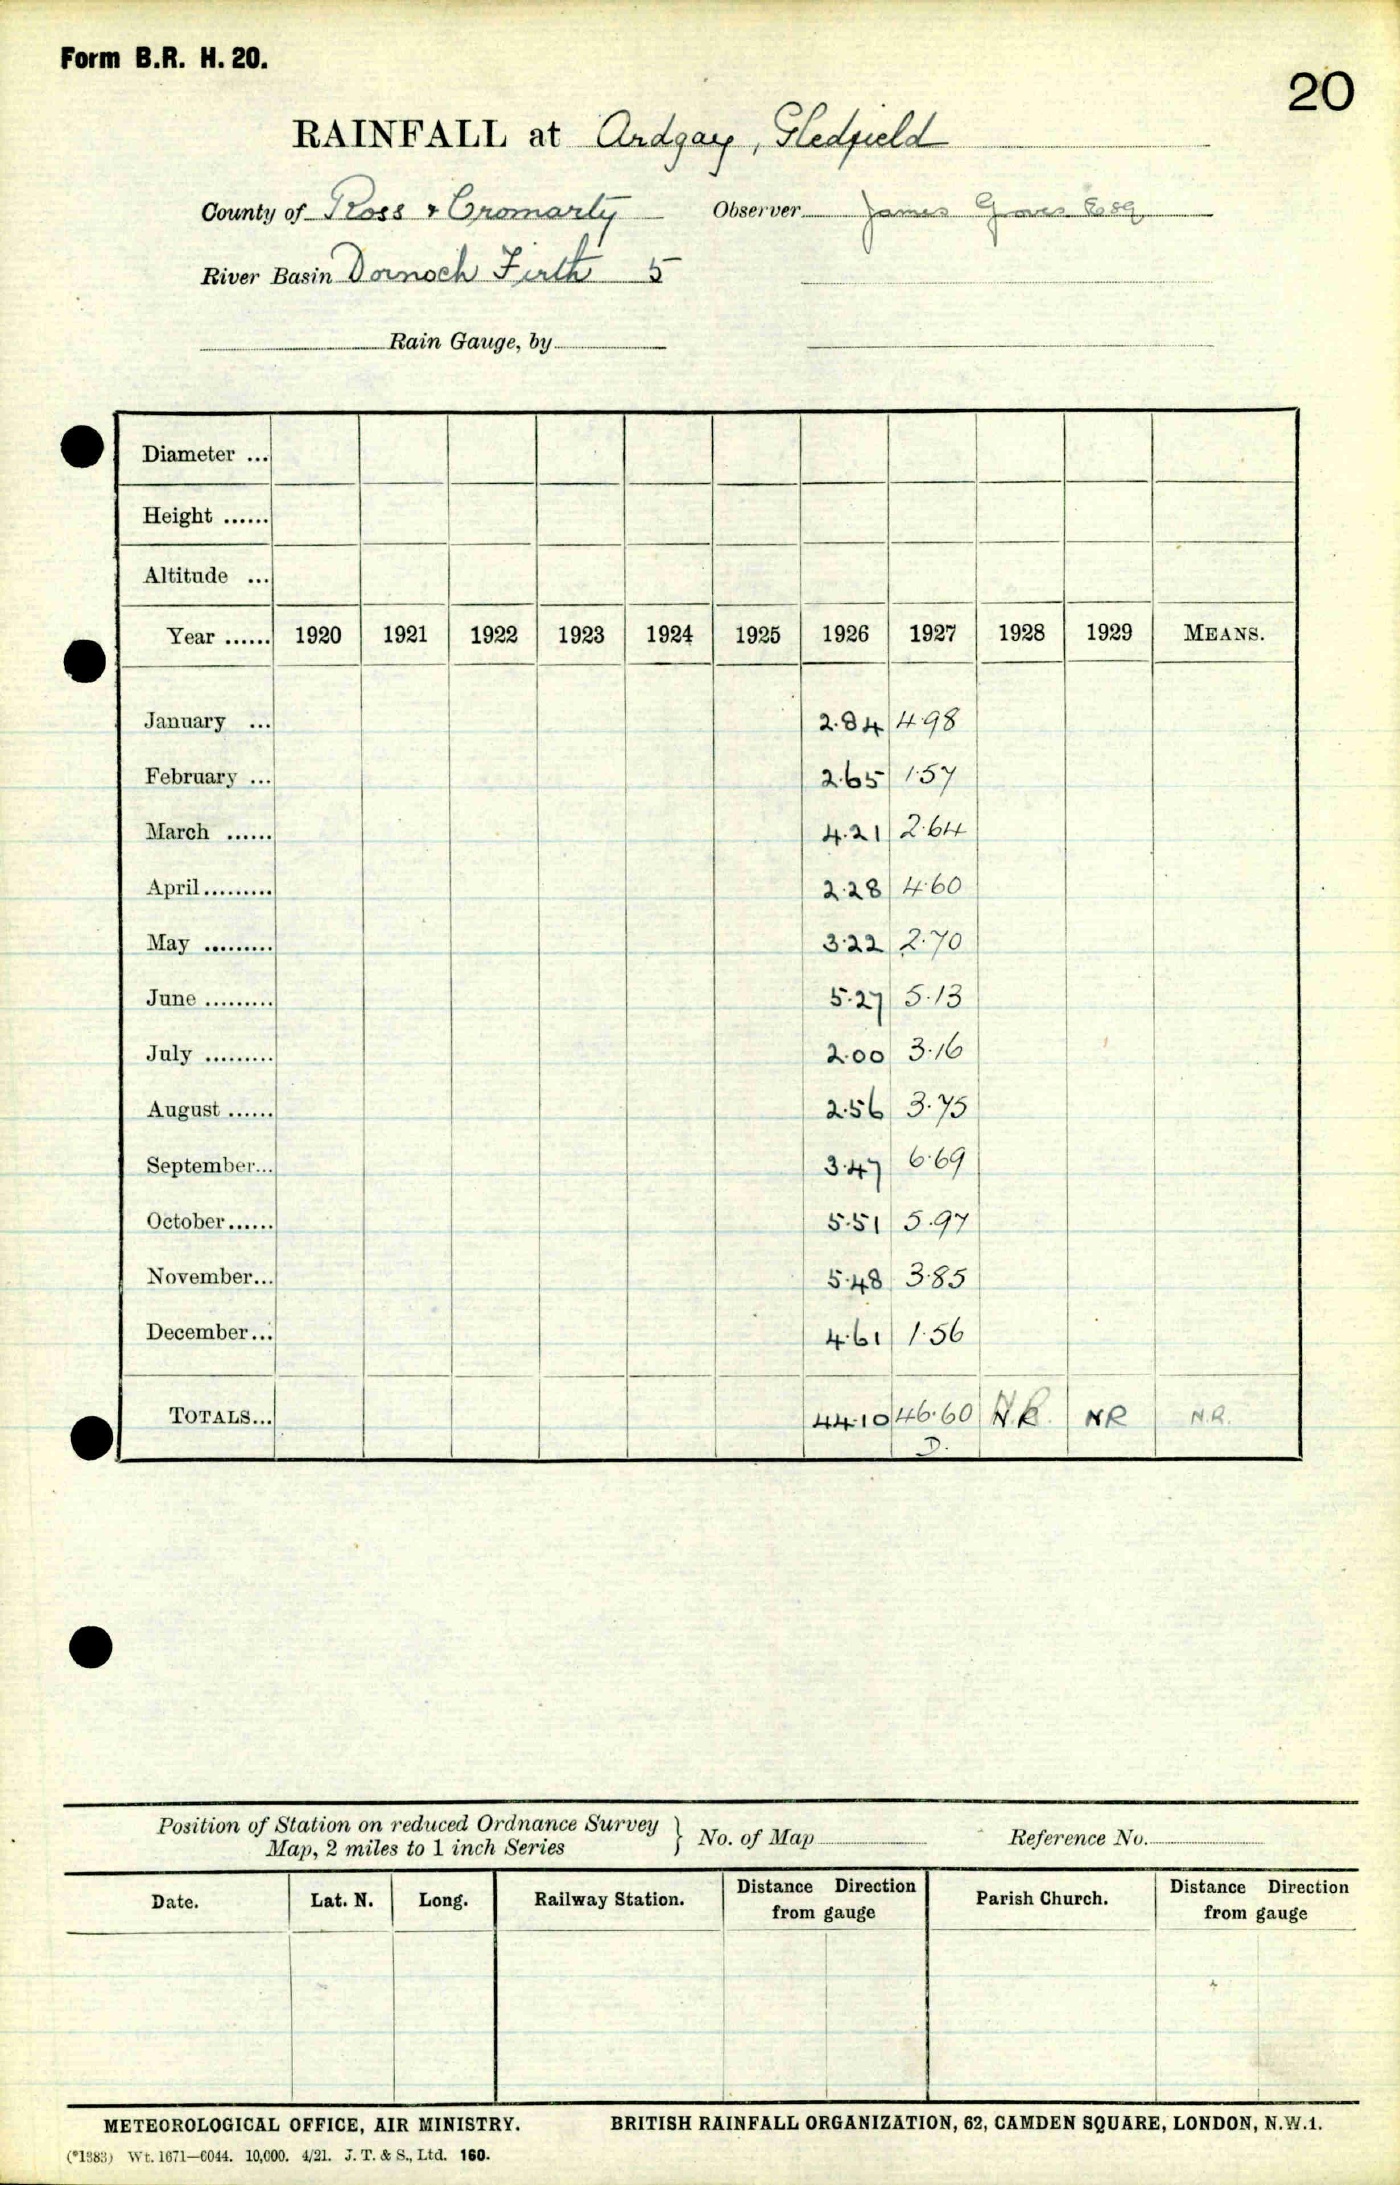 Form B.R. H. 20.
20
RAINFALL at Ardgay, Gledfield
County of Ross & Cromarty Observer James Groves Esq
River Basin Dornoch Firth 5
Rain Gauge, by
Diameter ...
Height ......
Altitude ...
Year ...... 1920 1921 1922 1923 1924 1925 1926 1927 1928 1929 MEANS.
January ... 2.84 4.98
February ... 2.65 1.57
March ...... 4.21 2.64
April......... 2.28 4.60
May ......... 3.22 2.70
June ......... 5.27 5.13
July ......... 2.00 3.16
August ...... 2.56 3.75
September... 3.47 6.69
October...... 5.51 5.97
November... 5.48 3.85
December... 4.61 1.56
TOTALS... 44.10 46.60 N.R. NR N.R.
D.
Position of Station on reduced Ordnance Survey
Map, 2 miles to 1 inch Series } No. of Map Reference No.
Date. Lat. N. Long. Railway Station. Distance Direction from gauge Parish Church. Distance Direction from gauge
METEOROLOGICAL OFFICE, AIR MINISTRY. BRITISH RAINFALL ORGANIZATION, 62, CAMDEN SQUARE, LONDON, N.W.1.
(*1383) Wt. 1671—6044. 10,000. 4/21. J. T. & S., Ltd. 160.